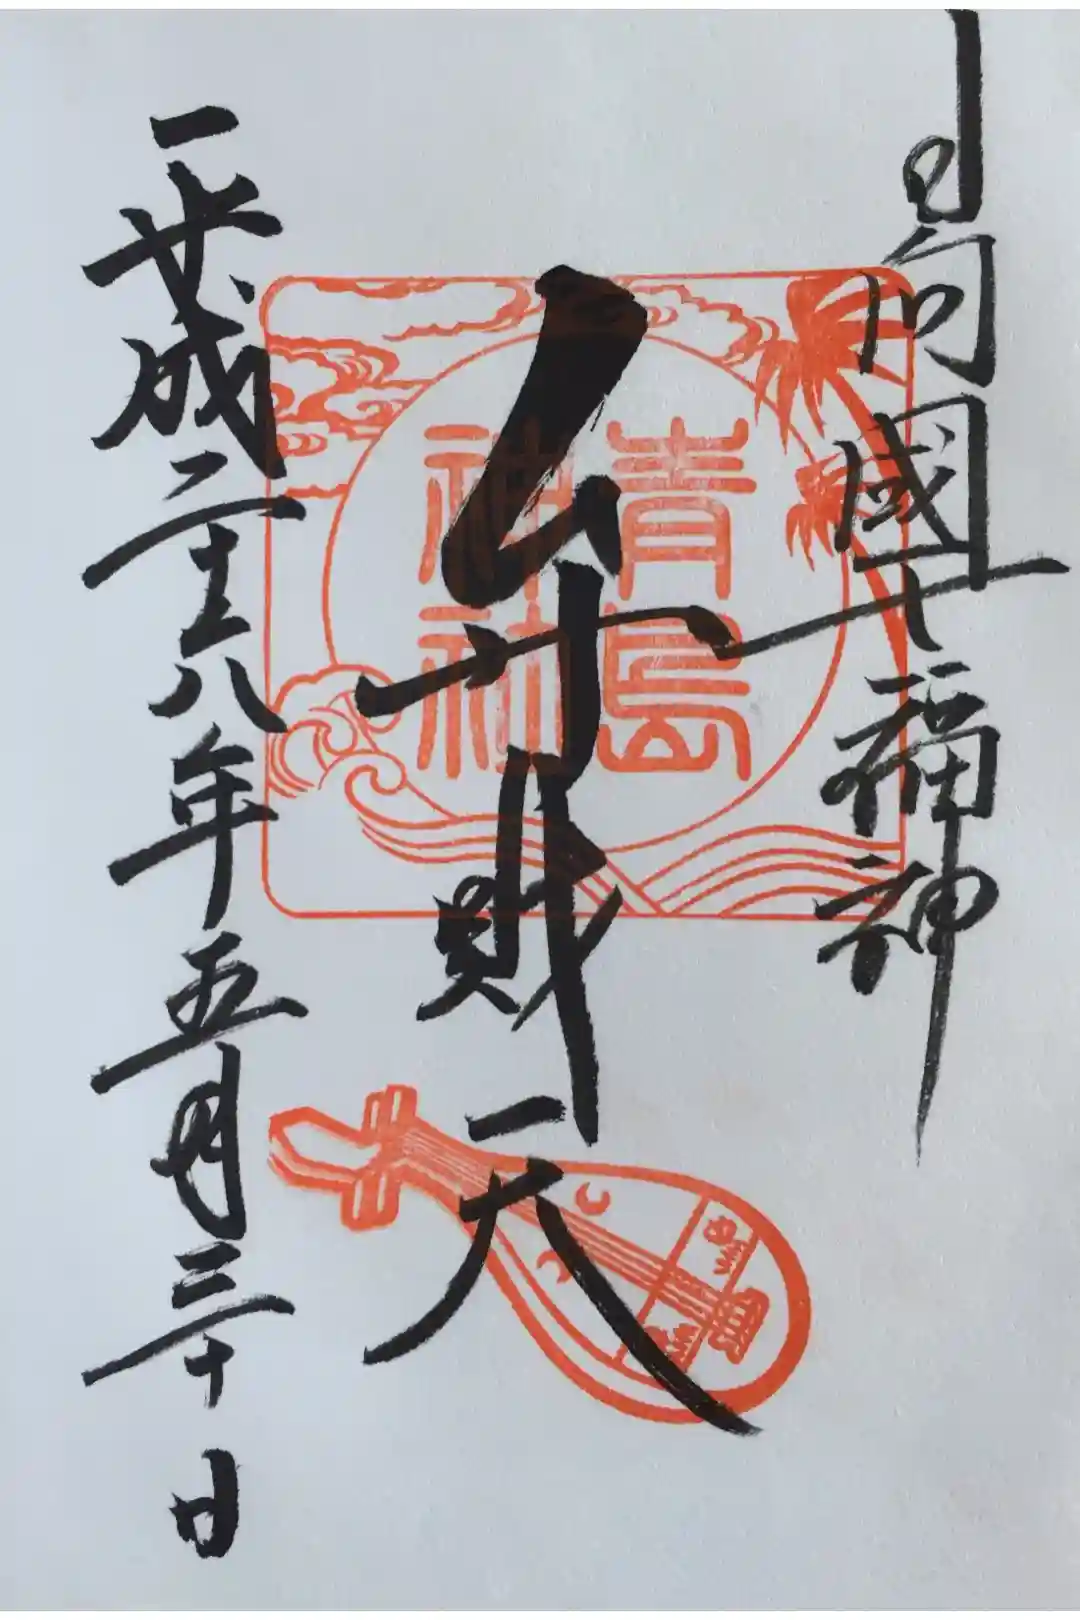 日向國七福神
弁財天
青島
神社
平成二十八年五月三十日